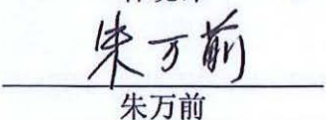 朱万前
朱万前